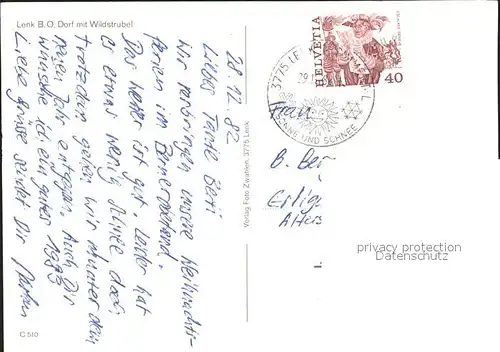 Lenk B.O. Dorf mit Wildstrubel
28.12.82
Liebes Tante Berti
Wir verbringen unsere Weihnachts-
ferien im Berneroberland.
Das Wetter ist gut. Leider hat
es etwas wenig Schnee doch
trotzdem gehen wir munter dem
neuen Jahr entgegen. Auch Dir
wünsche ich ein gutes 1983
Liebe Grüsse sendet Dir
C 510
Verlag Foto Zwahlen, 3775 Lenk
HELVETIA
40
3775 LENK
SONNE UND SCHNEE
Frau
B. Ber
Alters
privacy protection
Datenschutz